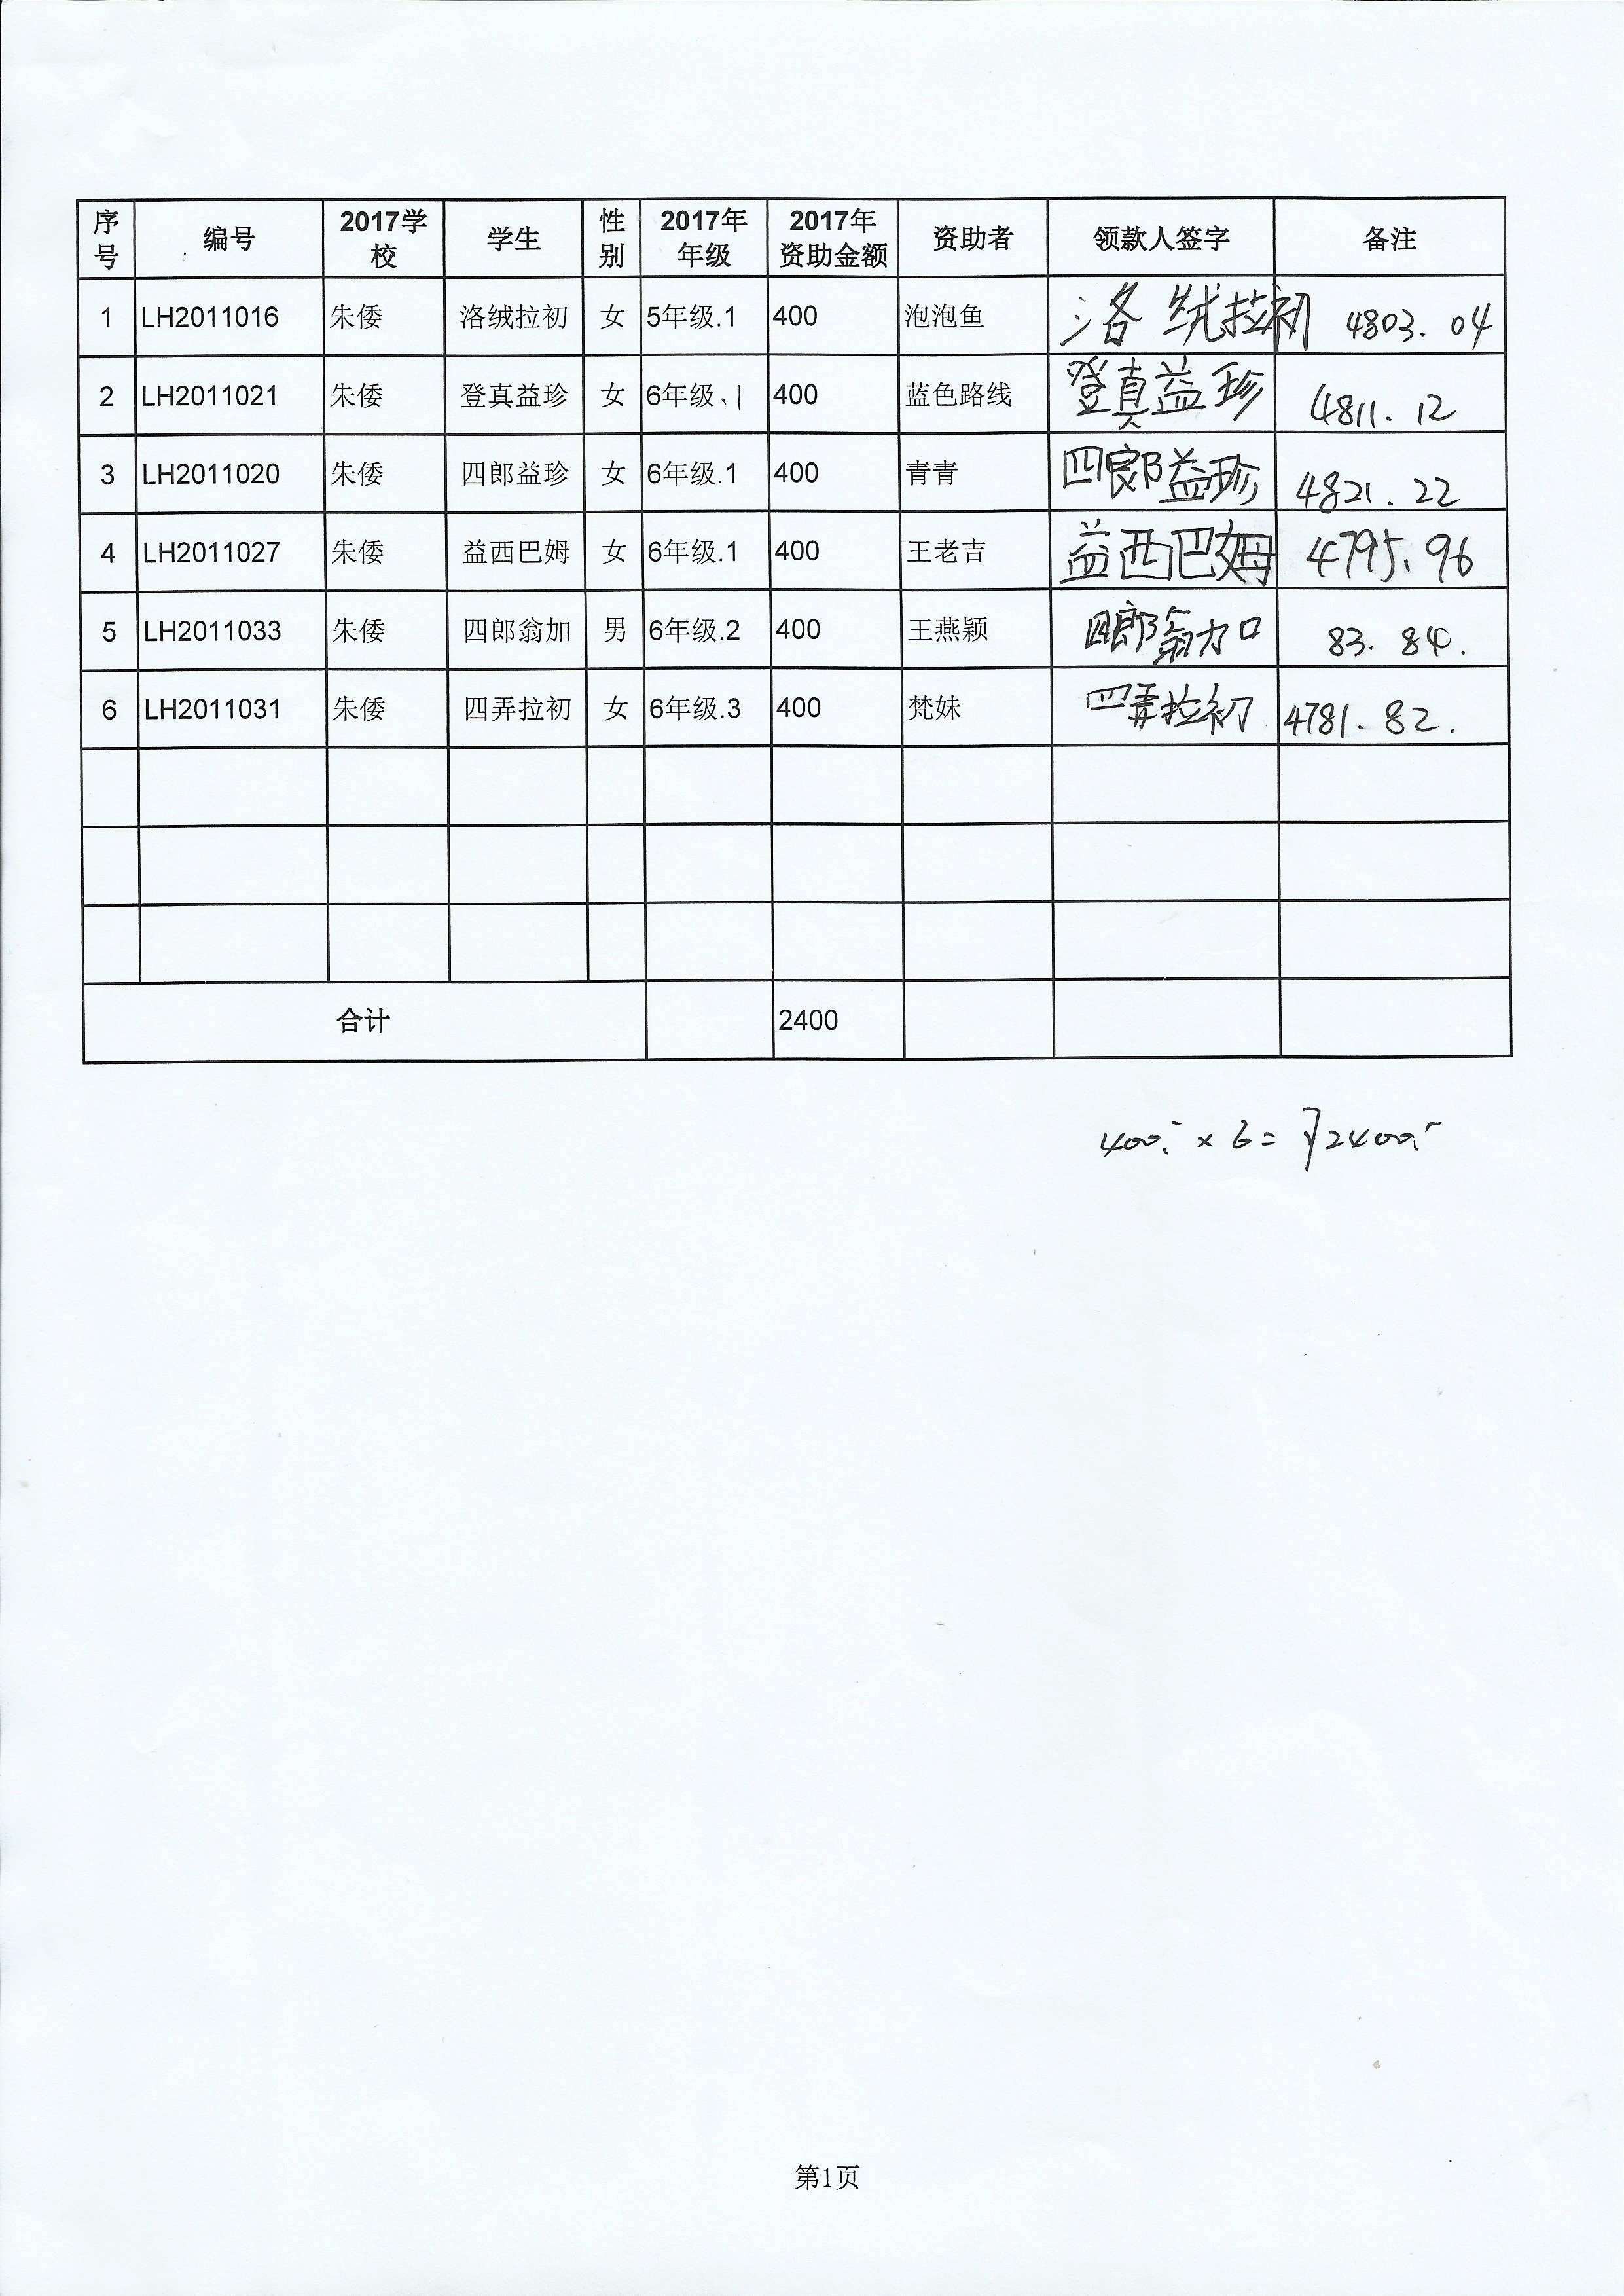 序号 编号 2017学校 学生 性别 2017年年级 2017年资助金额 资助者 领款人签字 备注
1 LH2011016 朱倭 洛绒拉初 女 5年级.1 400 泡泡鱼 洛绒拉初 4803.04
2 LH2011021 朱倭 登真益珍 女 6年级、1 400 蓝色路线 登真益珍 4811.12
3 LH2011020 朱倭 四郎益珍 女 6年级.1 400 青青 四郎益珍 4821.22
4 LH2011027 朱倭 益西巴姆 女 6年级.1 400 王老吉 益西巴姆 4795.96
5 LH2011033 朱倭 四郎翁加 男 6年级.2 400 王燕颖 四郎翁加 83.84.
6 LH2011031 朱倭 四弄拉初 女 6年级.3 400 梵妹 四弄拉初 4781.82.
合计 2400
400.- × 6 = ¥2400.-
第1页